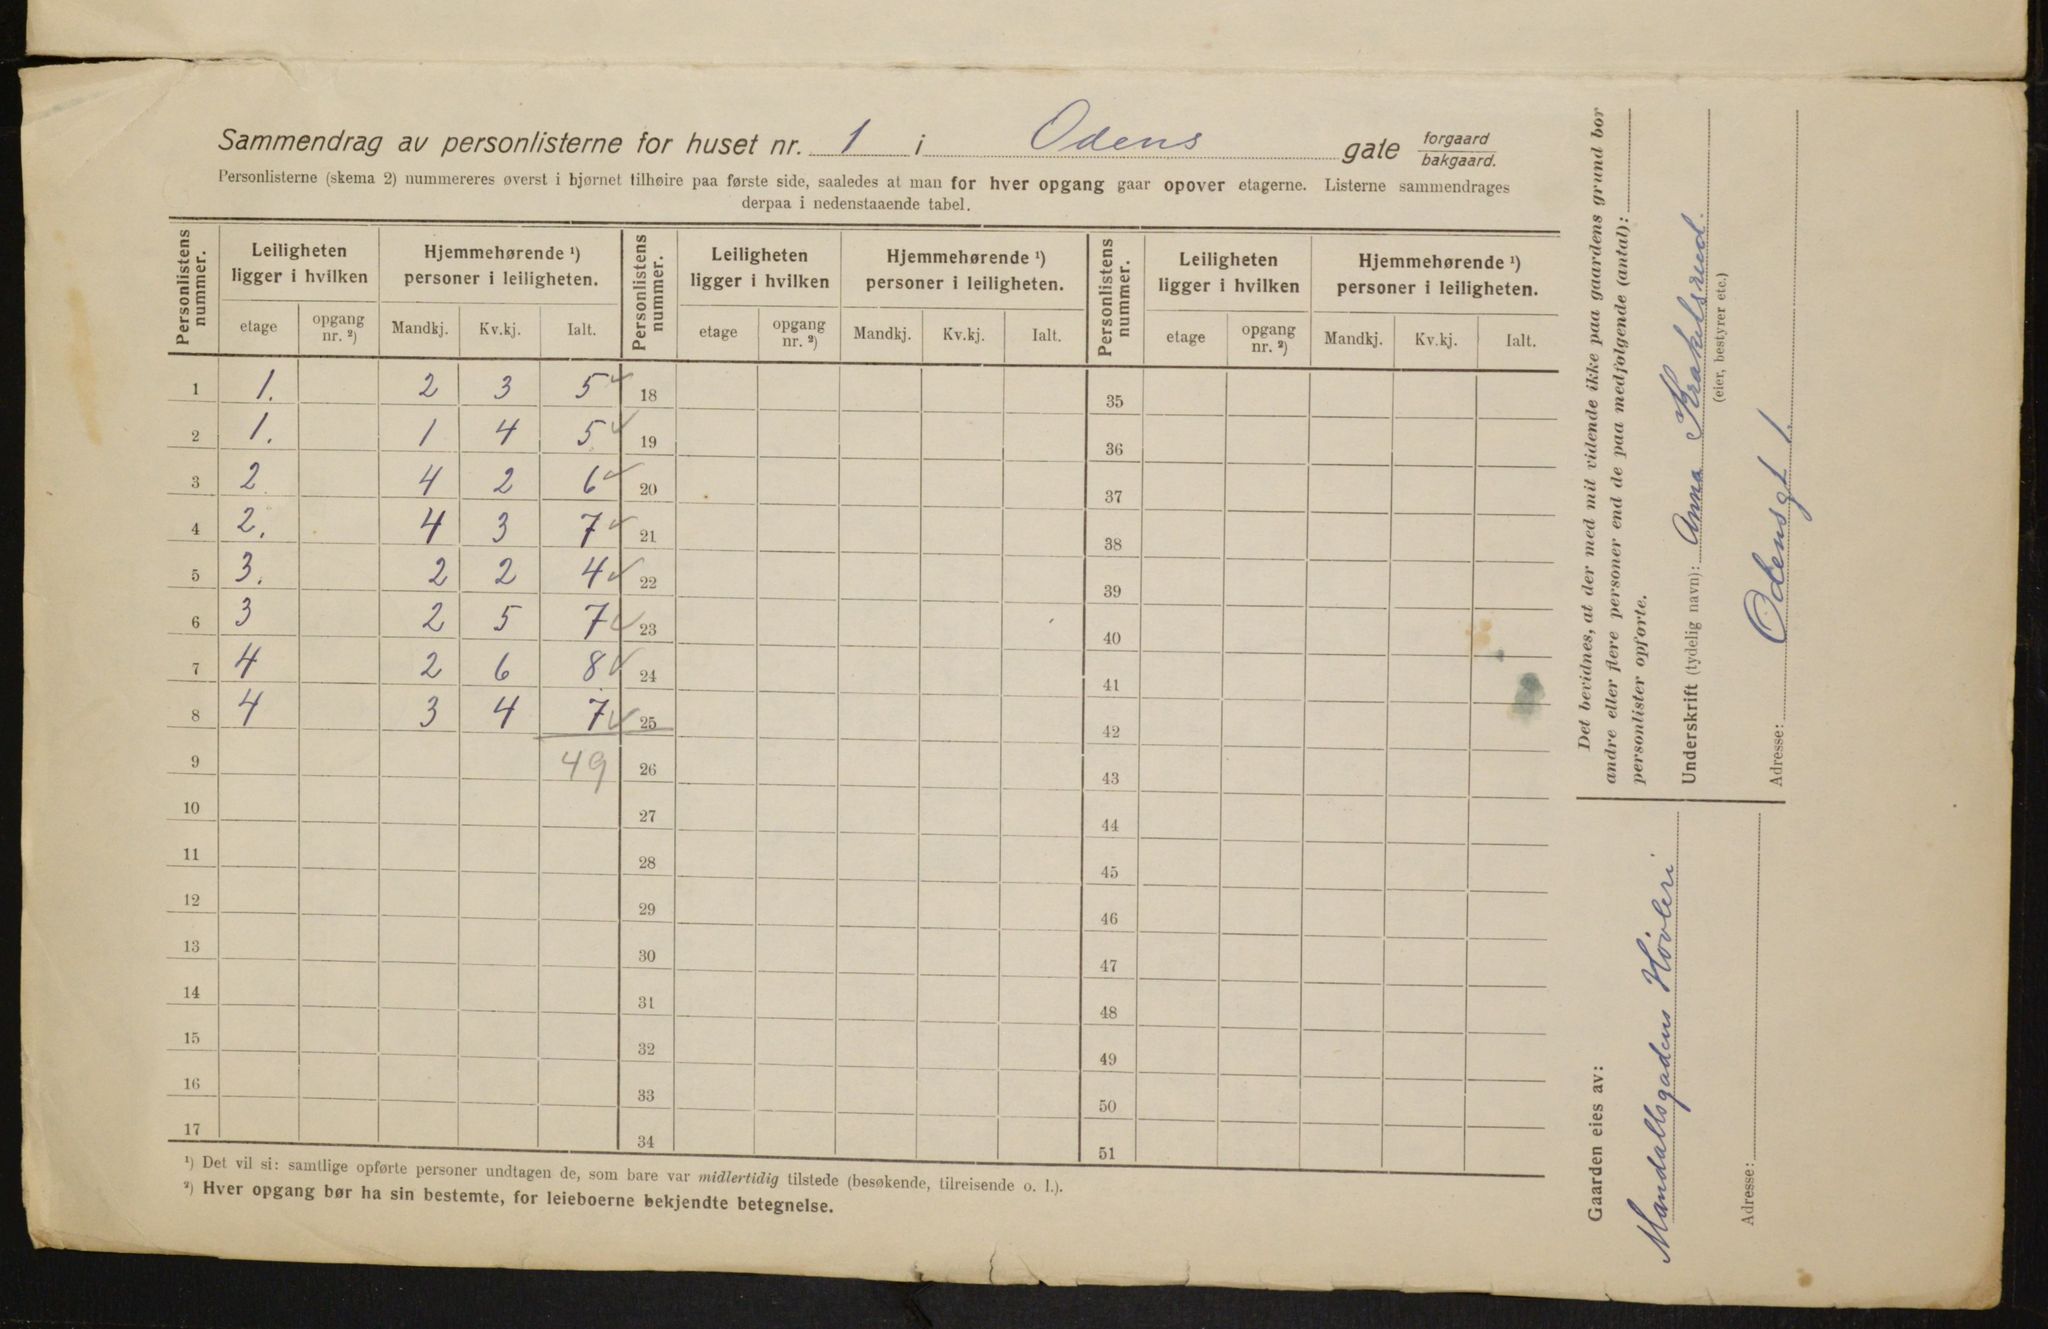 Sammendrag av personlisterne for huset nr. 1 i Odens gate forgaard / bakgaard.
Personlisterne (skema 2) nummereres øverst i hjørnet tilhøire paa første side, saaledes at man for hver opgang gaar opover etagerne. Listerne sammendrages
derpaa i nedenstaaende tabel.
Personlistens nummer. Leiligheten ligger i hvilken Hjemmehørende ¹) personer i leiligheten. Personlistens nummer. Leiligheten ligger i hvilken Hjemmehørende ¹) personer i leiligheten. Personlistens nummer. Leiligheten ligger i hvilken Hjemmehørende ¹) personer i leiligheten.
etage opgang nr. ²) Mandkj. Kv.kj. Ialt. etage opgang nr. ²) Mandkj. Kv.kj. Ialt. etage opgang nr. ²) Mandkj. Kv.kj. Ialt.
1 1. 2 3 5 ✓ 18 35
2 1. 1 4 5 ✓ 19 36
3 2 4 2 6 ✓ 20 37
4 2. 4 3 7 ✓ 21 38
5 3. 2 2 4 ✓ 22 39
6 3 2 5 7 ✓ 23 40
7 4 2 6 8 ✓ 24 41
8 4 3 4 7 ✓ 25 42
9 49 26 43
10 27 44
11 28 45
12 29 46
13 30 47
14 31 48
15 32 49
16 33 50
17 34 51
¹) Det vil si: samtlige opførte personer undtagen de, som bare var midlertidig tilstede (besøkende, tilreisende o. l.).
²) Hver opgang bør ha sin bestemte, for leieboerne bekjendte betegnelse.
Det bevidnes, at der med mit vidende ikke paa gaardens grund bor
andre eller flere personer end de paa medfølgende (antal):
personlister opførte.
Underskrift (tydelig navn): Anna Krakelsrud.
(eier, bestyrer ete.)
Adresse: Odensgt 1.
Gaarden eies av:
Mandallsgadens Høvleri
Adresse: